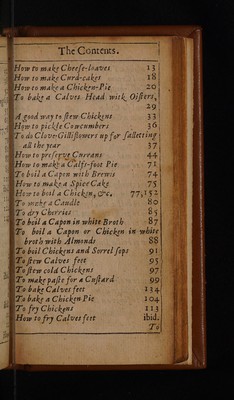 The Contents.
How to make Cheese-loaves 13
How to make Curd-cakes 18
How to make a Chicken-Pie 20
To bake a Calves Head with Oisters,
29
A good way to stew Chickens 33
How to pickle Cowcumbers 36
To do Clove-Gilliflowers up for salletting
all the year 37
How to preserve Currans 44
How to make a Calfs-foot Pie 71
To boil a Capon with Brewis 74
How to make a Spice Cake 75
How to boil a Chicken, &c. 77,152
To make a Caudle 80
To dry Cherries 85
To boil a Capon in white Broth 87
To boil a Capon or Chicken in white
broth with Almonds 88
To boil Chickens and Sorrel sops 91
To stew Calves feet 95
To stew cold Chickens 97
To make paste for a Custard 99
To bake Calves feet 134
To bake a Chicken Pie 104
To fry Chickens 113
How to fry Calves feet ibid.
To